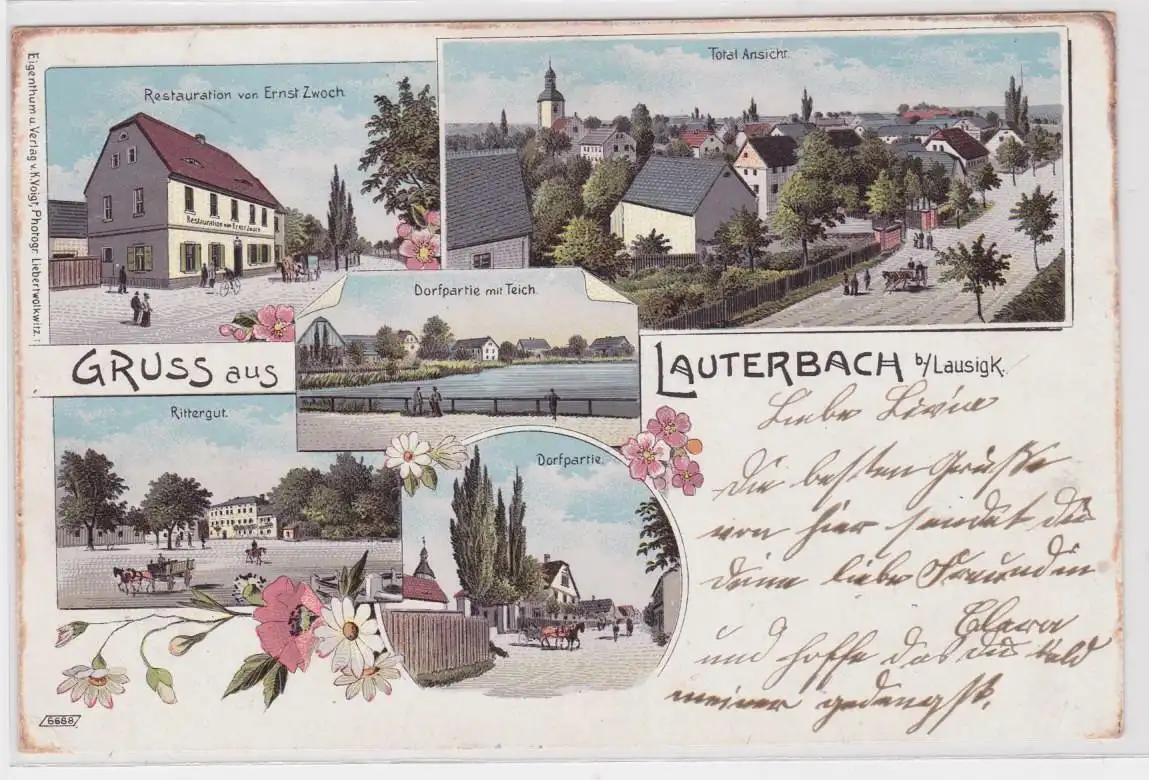 Eigenthum u. Verlag v. K. Voigt, Photogr. Liebertwolkwitz.
Restauration von Ernst Zwoch
Restauration von Ernst Zwoch
Total Ansicht.
Dorfpartie mit Teich.
GRUSS aus
LAUTERBACH b/Lausigk.
Rittergut.
Dorfpartie.
6688
Liebe Livia
Die besten Grüße
von hier sendet dir
deine liebe Freundin
Clara
und hoffe das du bald
meiner gedengst.